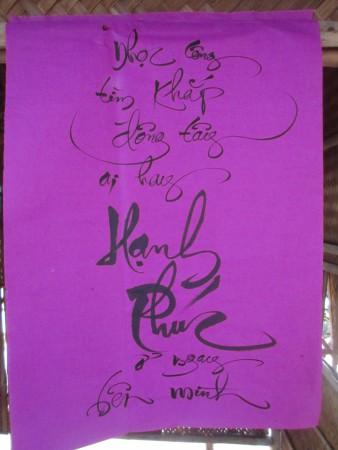 Nhọc công
tìm khắp
đông tây
ai hay
Hạnh
Phúc
ở ngay
bên mình